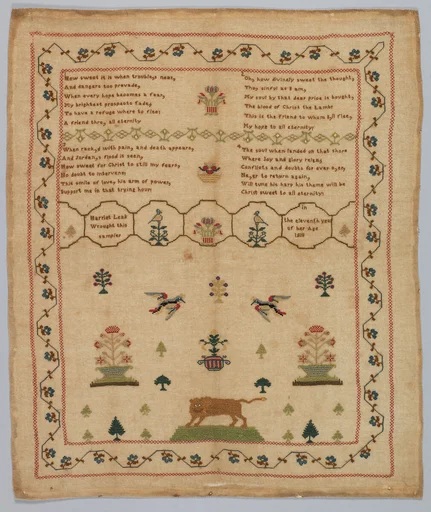 How sweet it is when troubles near,
And dangers too prevade,
When every hope becomes a fear,
My brightest prospects fade,
To have a refuge where to flee
A friend thro' all eternity
Oh, how divinely sweet the thought,
Tho, sinful as I am,
My soul by that dear price is bought,
The blood of Christ the Lamb
This is the friend to whom I, ll flee,
My hope to all eternity
When rack, d with pain, and death appears,
And Jordan, s flood is seen,
How sweet for Christ to still my fears,
No doubt to intervene;
This smile of love, his arm of power,
Support me in that trying hour;
The soul when landed on that shore
Where joy and glory reign,
Conflicts and doubts for ever o,er,
Ne,er to return again,
Will tune his harp his theme will be
Christ sweet to all eternity;
Harriet Leas
Wrought this
sampler
In
the eleventh year
of her Age